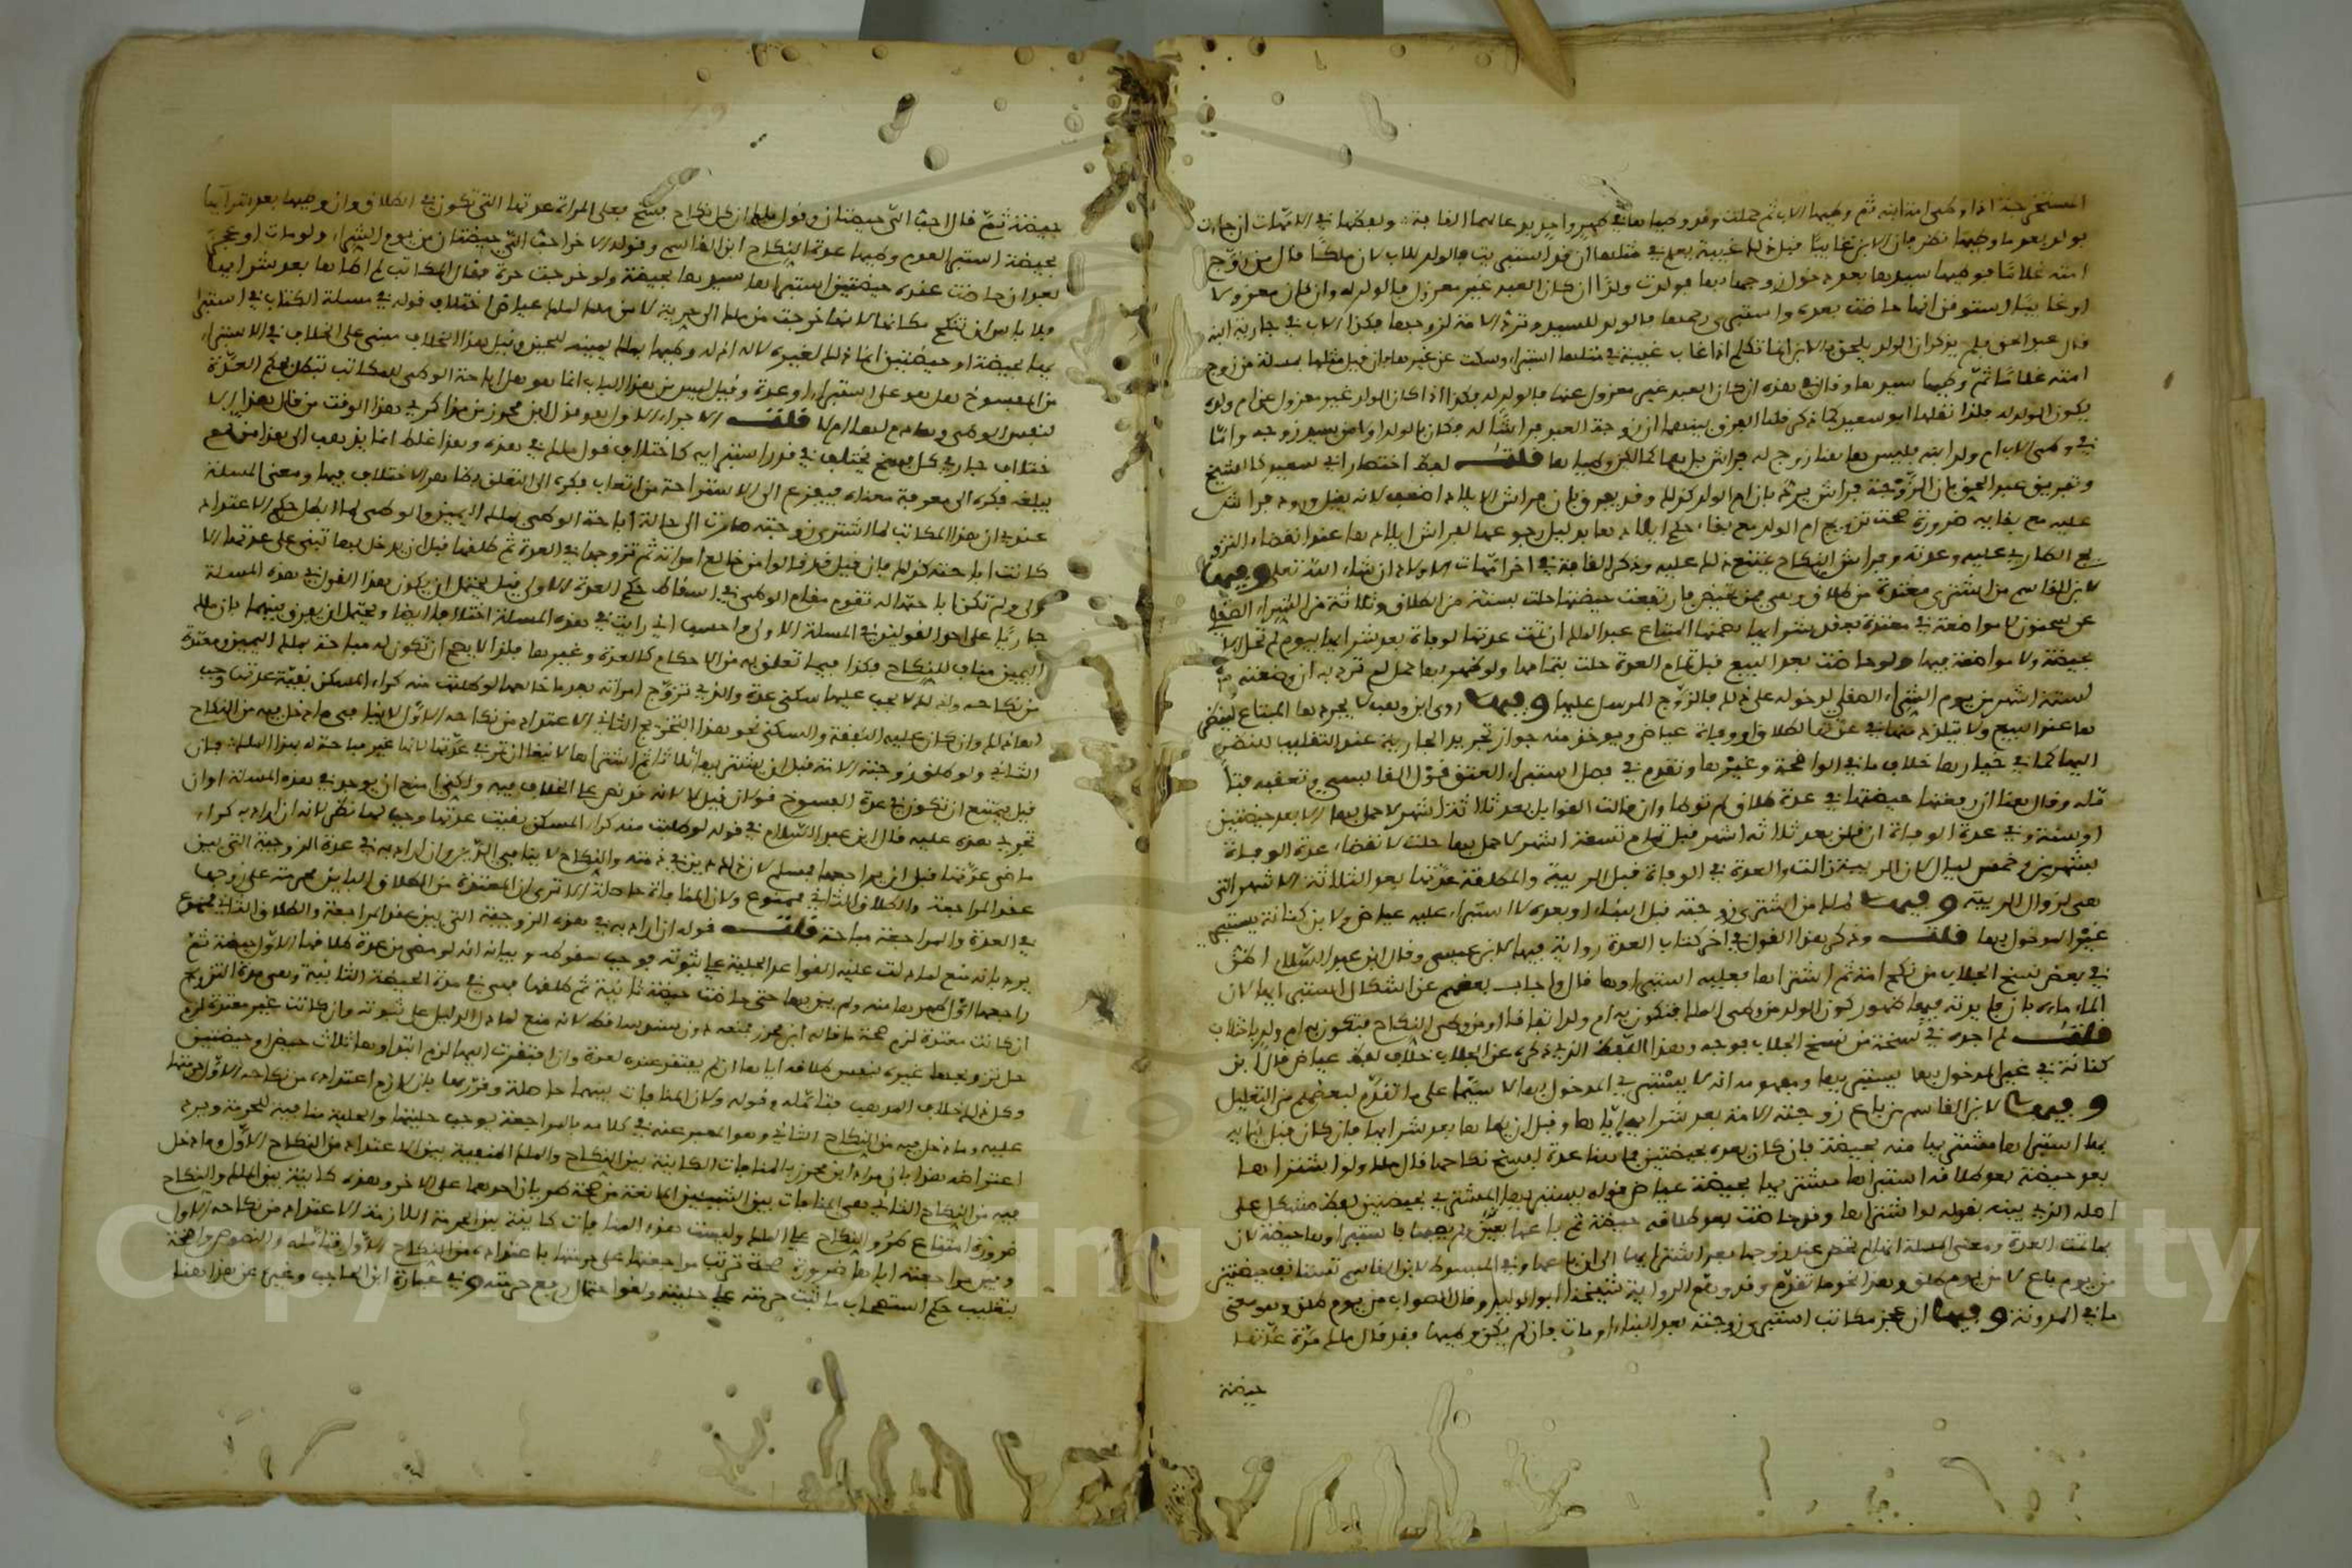 المستخرجة اذا وطئ امة ابنه ثم وطئها الاب ثم حملت وقد وطياها في طهر واحد يدعا لهما القافة وبعضها في الامهات ان جاءت
بولد بعدما وطئها نظر فان الابن غائبا قبل ذلك غيبة يعلم في مثلها ان قد استبريت فالولد للاب لان ملكا قال من زوج
امته غلاما فوطئها سيدها بعد دخول زوجها بها فولدت ولدا ان كان العبد غير معزول فالولد له وان كان معزولا
او غائبا يستوقن انها حاضت بعده واستبرئ رحمها فالولد للسيد وترد الامة لزوجها فكذا الاب في جارية ابنه
قال عبد الحق فلم يذكر ان الولد يلحق بالابن انما تكلم اذا غاب غيبة في مثلها استبراء وسكت عن غيرها فان قيل مثلها بمسئلة من زوج
امته غلاما ثم وطئها سيدها وقال في هذه ان كان العبد غير معزول عنها فالولد له فكذا اذا كان الولد غير معزول عن ام ولده
يكون الولد له فلذا نقلها ابو سعيد كما ذكر قلنا الفرق بينهما ان زوجة العبد فراشا له فكان بالولد اولى من سيد زوجه واما
في وطئ الاب ام ولد ابنه فليس هاهنا زوج له فراش بل هما كمالكين وطياها قلت لفظ اختصار ابي سعيد كالشيخ
وتفريق عبد الحق بان الزوجة فراش يرد بان ام الولد كذلك وقد يفرق بان فراش الايلاد اضعف لانه يقبل ورود فراش
عليه مع بقائه ضرورة صحة تزويج ام الولد مع بقاء حكم ايلادها بدليل رجوعها لفراش ايلادها عند انقضاء التزويج
الطارئ عليه وعدته وفراش النكاح يمتنع ذلك عليه وذكر القافة في اخر امهات الاولاد ان شاء الله تعلى وفيها
لابن القاسم من اشترى معتدة من طلاق وهي ممن تحيض فارتفعت حيضتها حلت بسنة من الطلاق وثلاثة من الشراء الصقلي
عن سحنون لا مواضعة في معتدة بعقد شرائها يضمنها المبتاع عبد الملك ان تمت عدتها لوفاة بعد شرائها بيوم لم تحل الا
بحيضة ولا مواضعة فيها ولو حاضت بعد البيع قبل تمام العدة حلت بتمامها ولو ظهر بها حمل لم ترد به ان وضعته
لستة اشهر من يوم الشراء الصقلي لدخوله على ذلك فالزوج المرسل عليها وفيها روى ابن وهب لا يجرد بها المبتاع لينظر
ها عند البيع ولا يتلذذ منها في عدتها لطلاق او وفاة عياض ويوخذ منه جواز تجريد الجارية عند التقليب للنظر
اليها كما في خيارها خلاف ما في الواضحة وغيرها وتقدم في فصل استبراء العتق قول القابسي وتعقبه
قاله وقال هنا ان رفعتها حيضتها في عدة طلاق لم توطا وان قالت القوابل بعد ثلاثة اشهر لا حمل بها الا بعد حيضتين
او سنة وفي عدة الوفاة ان قلن بعد ثلاثة اشهر قبل تمام تسعة اشهر لا حمل بها حلت لانقضاء عدة الوفاة
بشهرين وخمس ليال لان الريبة زالت والعدة في الوفاة قبل الريبة والمطلقة عدتها بعد الثلاثة الاشهر التي
هي لزوال الريبة وفيها لملك من اشترى زوجته قبل البناء او بعده لا استبراء عليه عياض ولابن كنانة يستبرئ
غير المدخول بها قلت وذكر هذا القول في اخر كتاب العدة رواية فيها لابن عيسى وقال ابن عبد السلام اطلق
في بعض نسخ الجلاب من نكح امة ثم اشتراها فعليه استبراؤها قال واجاب بعضهم عن اشكال استبرائها لان
الماء ماؤه بان فائدته فيها ظهور كون الولد من وطئ الملك فتكون به ام ولد اتفاقا او من وطئ النكاح فتكون به ام ولد باختلاف
قلت لم اجده في نسخة من نسخ الجلاب بوجه وهذا اللفظ الذي ذكره عن الجلاب خلاف لفظ عياض قال ابن
كنانة في غير المدخول بها يستبرئ بها ومفهومه انه لا يستبرئ في المدخول بها لا سيما على ما تقدم لبعضهم من التعليل
وفيها لابن القاسم من باع زوجته الامة بعد شرائه اياها وقبل ان يطاها بعد شرائها فان كان قبل بنائه
بها استبراها مشتريها منه بحيضة فان كان بعده بحيضتين فانها عدة لفسخ نكاحها قال ملك ولو اشتراها
بعد حيضة بعد طلاقه استبراها مشتريها بحيضة عياض قوله يستبريها المشتري بحيضتين لفظ مشكل على
اصله الذي بينه بقوله لو اشتراها وقد حاضت بعد طلاقه حيضة ثم باعها بعد ولم يطاها فاستبراؤها حيضة لان
بها تمت العدة ومعنى المسئلة انها لم تحض عند زوجها بعد اشترائها الى ان باعها وفي المبسوط لابن القاسم تستانف حيضتين
من يوم باع لا من يوم طلق وهذا نحو ما تقدم وقد وهم الرواية شيخنا ابو الوليد وقال الصواب من يوم طلق وهو معنى
ما في المدونة وفيها ان عجز مكاتب اشترى زوجته بعد البناء او مات فان لم يكن وطئها فقد قال ملك مرة عدتها
حيضة
حيضة ثم قال احب الي حيضتان وقول ملك ان كل نكاح يفسخ فعلى المراة عدتها التي تكون في الطلاق وان وطئها بعد شرائها
بحيضة استبرا لهدم وطئها عدة النكاح ابن القاسم وقوله الاخر احب الي حيضتان من يوم الشراء ولو مات او عجز
بعد ان حاضت عنده حيضتين استبراها سيدها بحيضة ولو خرجت حرة فقال المكاتب لم اطاها بعد شرائها
فلا باس ان تنكح مكانها لانها خرجت من ملك الى حرية لا من ملك لملك عياض اختلاف قوله في مسئلة الكتاب في استبرا
ئها بحيضة او حيضتين انما ذلك لغيره لا له اذ له وطيها بملك يمينه للحين وقيل هذا الخلاف مبني على الخلاف في الاستبراء
من المفسوخ هل هو على استبراء او عدة وقيل ليس من هذا الباب انما هو هل اباحة الوطئ للمكاتب تبطل حكم العدة
لنفس الوطئ وهادم لها ام لا قلت الاجراء الاول هو قول ابن محرز من مذاكري هذا الوقت من قال هذا الا
ختلاف جار في كل فسخ يختلف في قدر استبرائه كاختلاف قول ملك في هذه وهذا غلط انما يذهب الى هذا من لم
يبلغ فكره الى معرفة معناه فيفزع الى الاستراحة من اتعاب فكره الى التعلق بظاهر الاختلاف فيها ومعنى المسئلة
عندي ان هذا المكاتب لما اشترى زوجته صارت الى حالة اباحة الوطئ بملك اليمين والوطئ لما ابطل حكم الاعتداد
كانت اباحته كذلك فان قيل قد قالوا من خالع امراته ثم تزوجها في العدة ثم طلقها قبل ان يدخل بها تبني على عدتها الا
ولى ولم تكن اباحتها له تقوم مقام الوطئ في اسقاط حكم العدة الاولى قيل يحتمل ان يكون هذا القول في هذه المسئلة
جاريا على احد القولين في المسئلة الاولى واحسب اني رايت في هذه المسئلة اختلافا ايضا ويحتمل ان يفرق بينهما بان ملك
اليمين مناف للنكاح فكذا فيما تعلق به من الاحكام كالعدة وغيرها فلذا لا يصح ان تكون له مباحة بملك اليمين ومعتدة
من نكاحه ولذلك لا يجب عليها سكنى عدة والذي تزوج امراته بعد ما خالعها لو طلبت منه كراء المسكن بقية عدتها وجب
لها ذلك وان كان عليه النفقة والسكنى نحو هذا التزويج الثاني الاعتداد من نكاحه الاول لانها هي ما دخل فيه من النكاح
الثاني ولو طلق زوجته الامة قبل ان يشتريها ثلاثا ثم اشتراها لا تبقا ان تبري في عدتها لانها غير مباحة له بهذا الملك فان
قيل يمتنع ان تكون في عدة الفسوخ قول ان قيل لا لانه قد نص على الخلاف فيه ولكني امنع ان يوجد في هذه المسئلة او ان
تجري هذه عليه قال ابن عبد السلام في قوله لو طلبت منه كراء المسكن بقيت عدتها وجب لها نظر لانه ان اراد به كراء
ما مضى عدتها قبل ان يراجعها فمسلم لان ذلك دين في ذمته والنكاح لا ينافي الدين وان اراد به في عدة الزوجية التي بين
عقد المراجعة والطلاق الثاني فممنوع ولان المنافاة حاصلة الا ترى ان المعتدة من الطلاق البائن محرمة على زوجها
في العدة والمراجعة مباحة قلت قوله ان اراد به في هذه الزوجية التي بين عقد المراجعة والطلاق الثاني فممنوع
يرد بانه منع لما دلت عليه القواعد الجلية على ثبوته فوجب سقوطه وبيانه انه لو مضى من عدة طلاقها الاول حيضة ثم
راجعها اول طهرها منه ولم يبن بها حتى حاضت حيضة ثانية ثم طلقها فهي في مدة الحيضة الثانية وهي مدة التزويج
ان كانت معتدة لزم صحة ما قاله ابن محرز ممنعه دون سند ساقط لانه منع لما دل الدليل على ثبوته وان كانت غير معتدة لزم
حل تزويجها غيره بنفس طلاقه اياها ان لم يفتقر عنده لعدة وان افتقرت اليها لزم ابتداؤها ثلاث حيض او حيضتين
وكل ذلك خلاف المذهب فتامله وقوله ولان المنافات بينهما حاصلة وقررها بان لازم اعتداده من نكاحه الاول حرمتها
عليه وما دخل فيه من النكاح الثاني وهو المعبر عنه في كلامه بالمراجعة يوجب حليتها والحلية منافية للحرمة ويرد
اعتراضه هذا بان مراد ابن محرز بالمنافات الكائنة بين النكاح والملك المنفية بين الاعتداد من النكاح الاول وما دخل
فيه من النكاح الثاني هي المنافات بين الشيئين المانعة من صحة طرو احدهما على الاخر وهذه كائنة بين الملك والنكاح
ضرورة امتناع طرو النكاح على الملك وليست هذه المنافات كائنة بين الحرمة اللازمة الاعتداد من نكاحه الاول
وبين مراجعته اياها ضرورة صحة ترتب مراجعتها على حرمتها باعتداده من النكاح الاول فتامله والنصوص واضحة
بتغليب حكم استصحاب ما ثبت حرمته على حليته ولغو احتمال رفع حرمته وفي عبارة ابن الحاجب وغيره عن هذا هنا